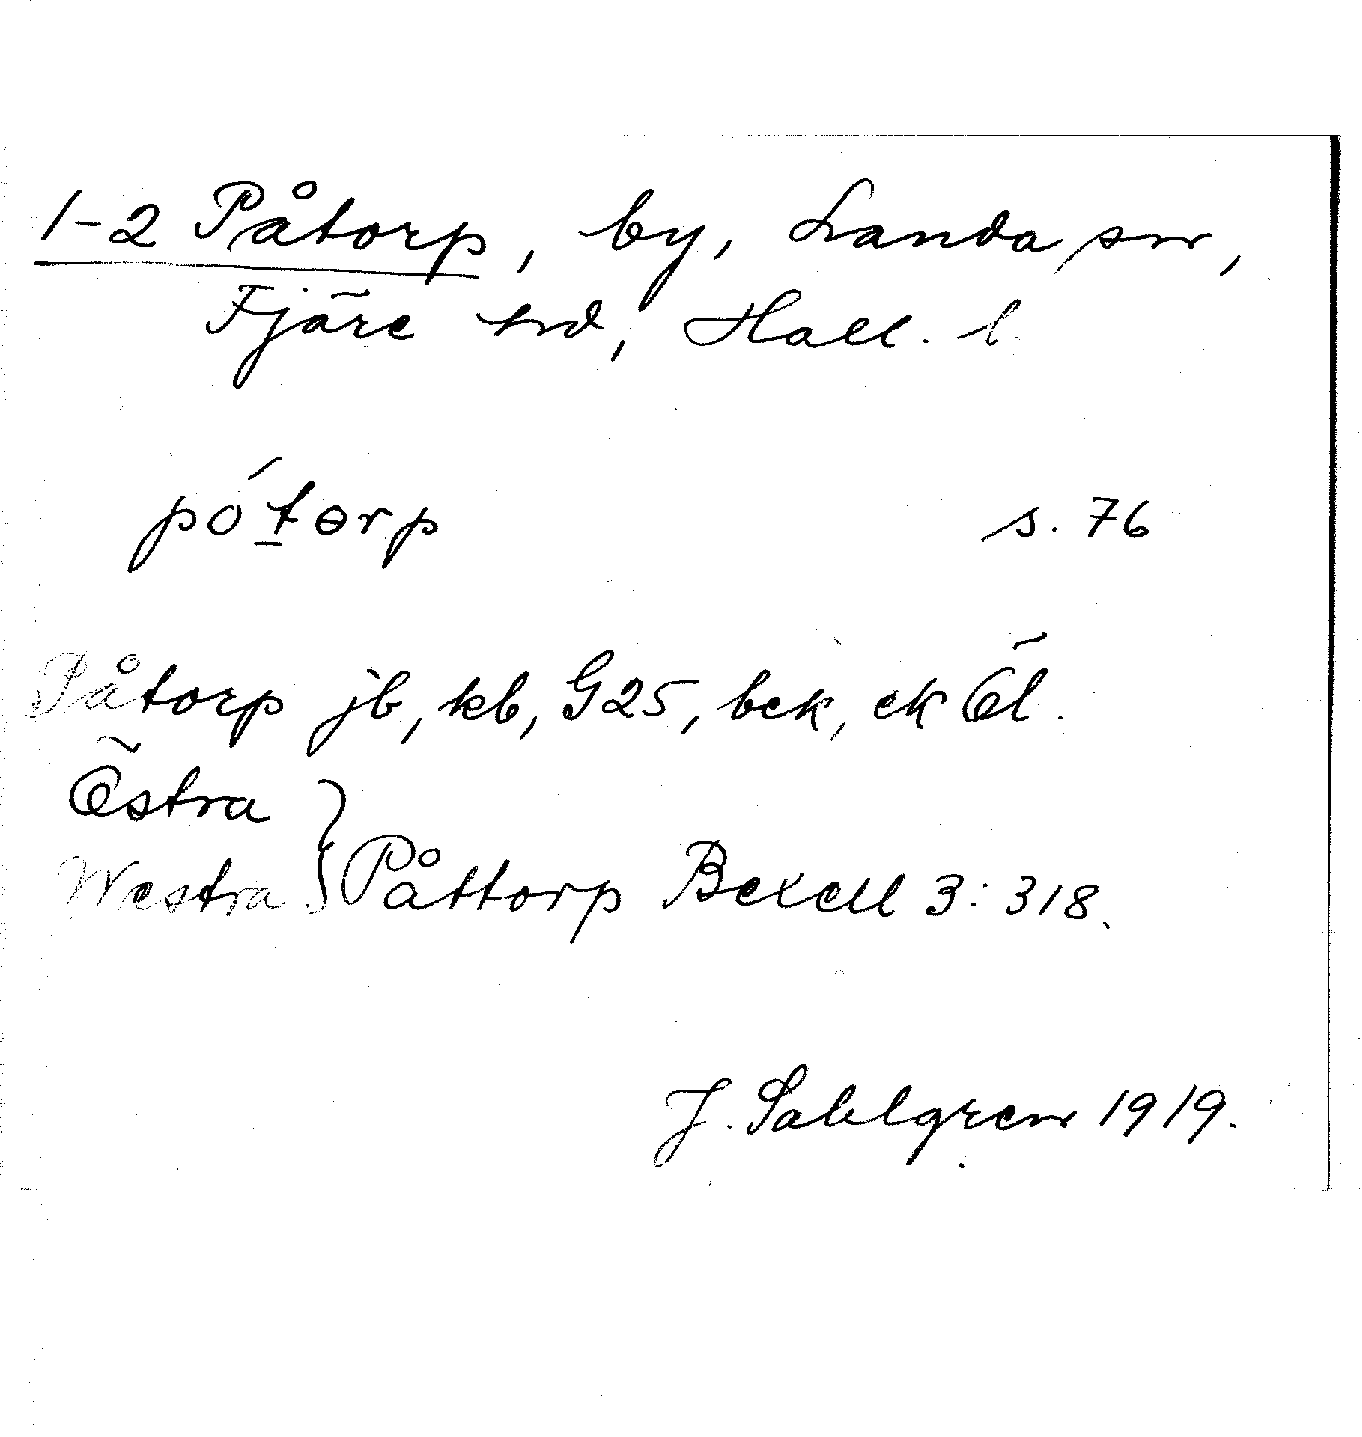 1-2 Påtorp, by, Landa sn,
Fjäre hd, Hall. l.
pót̲ɵrp s. 76
Påtorp jb, kb, G25, bek, ek Öl.
Östra
Westra } Påttorp Bexell 3:318.
J. Sahlgren 1919.